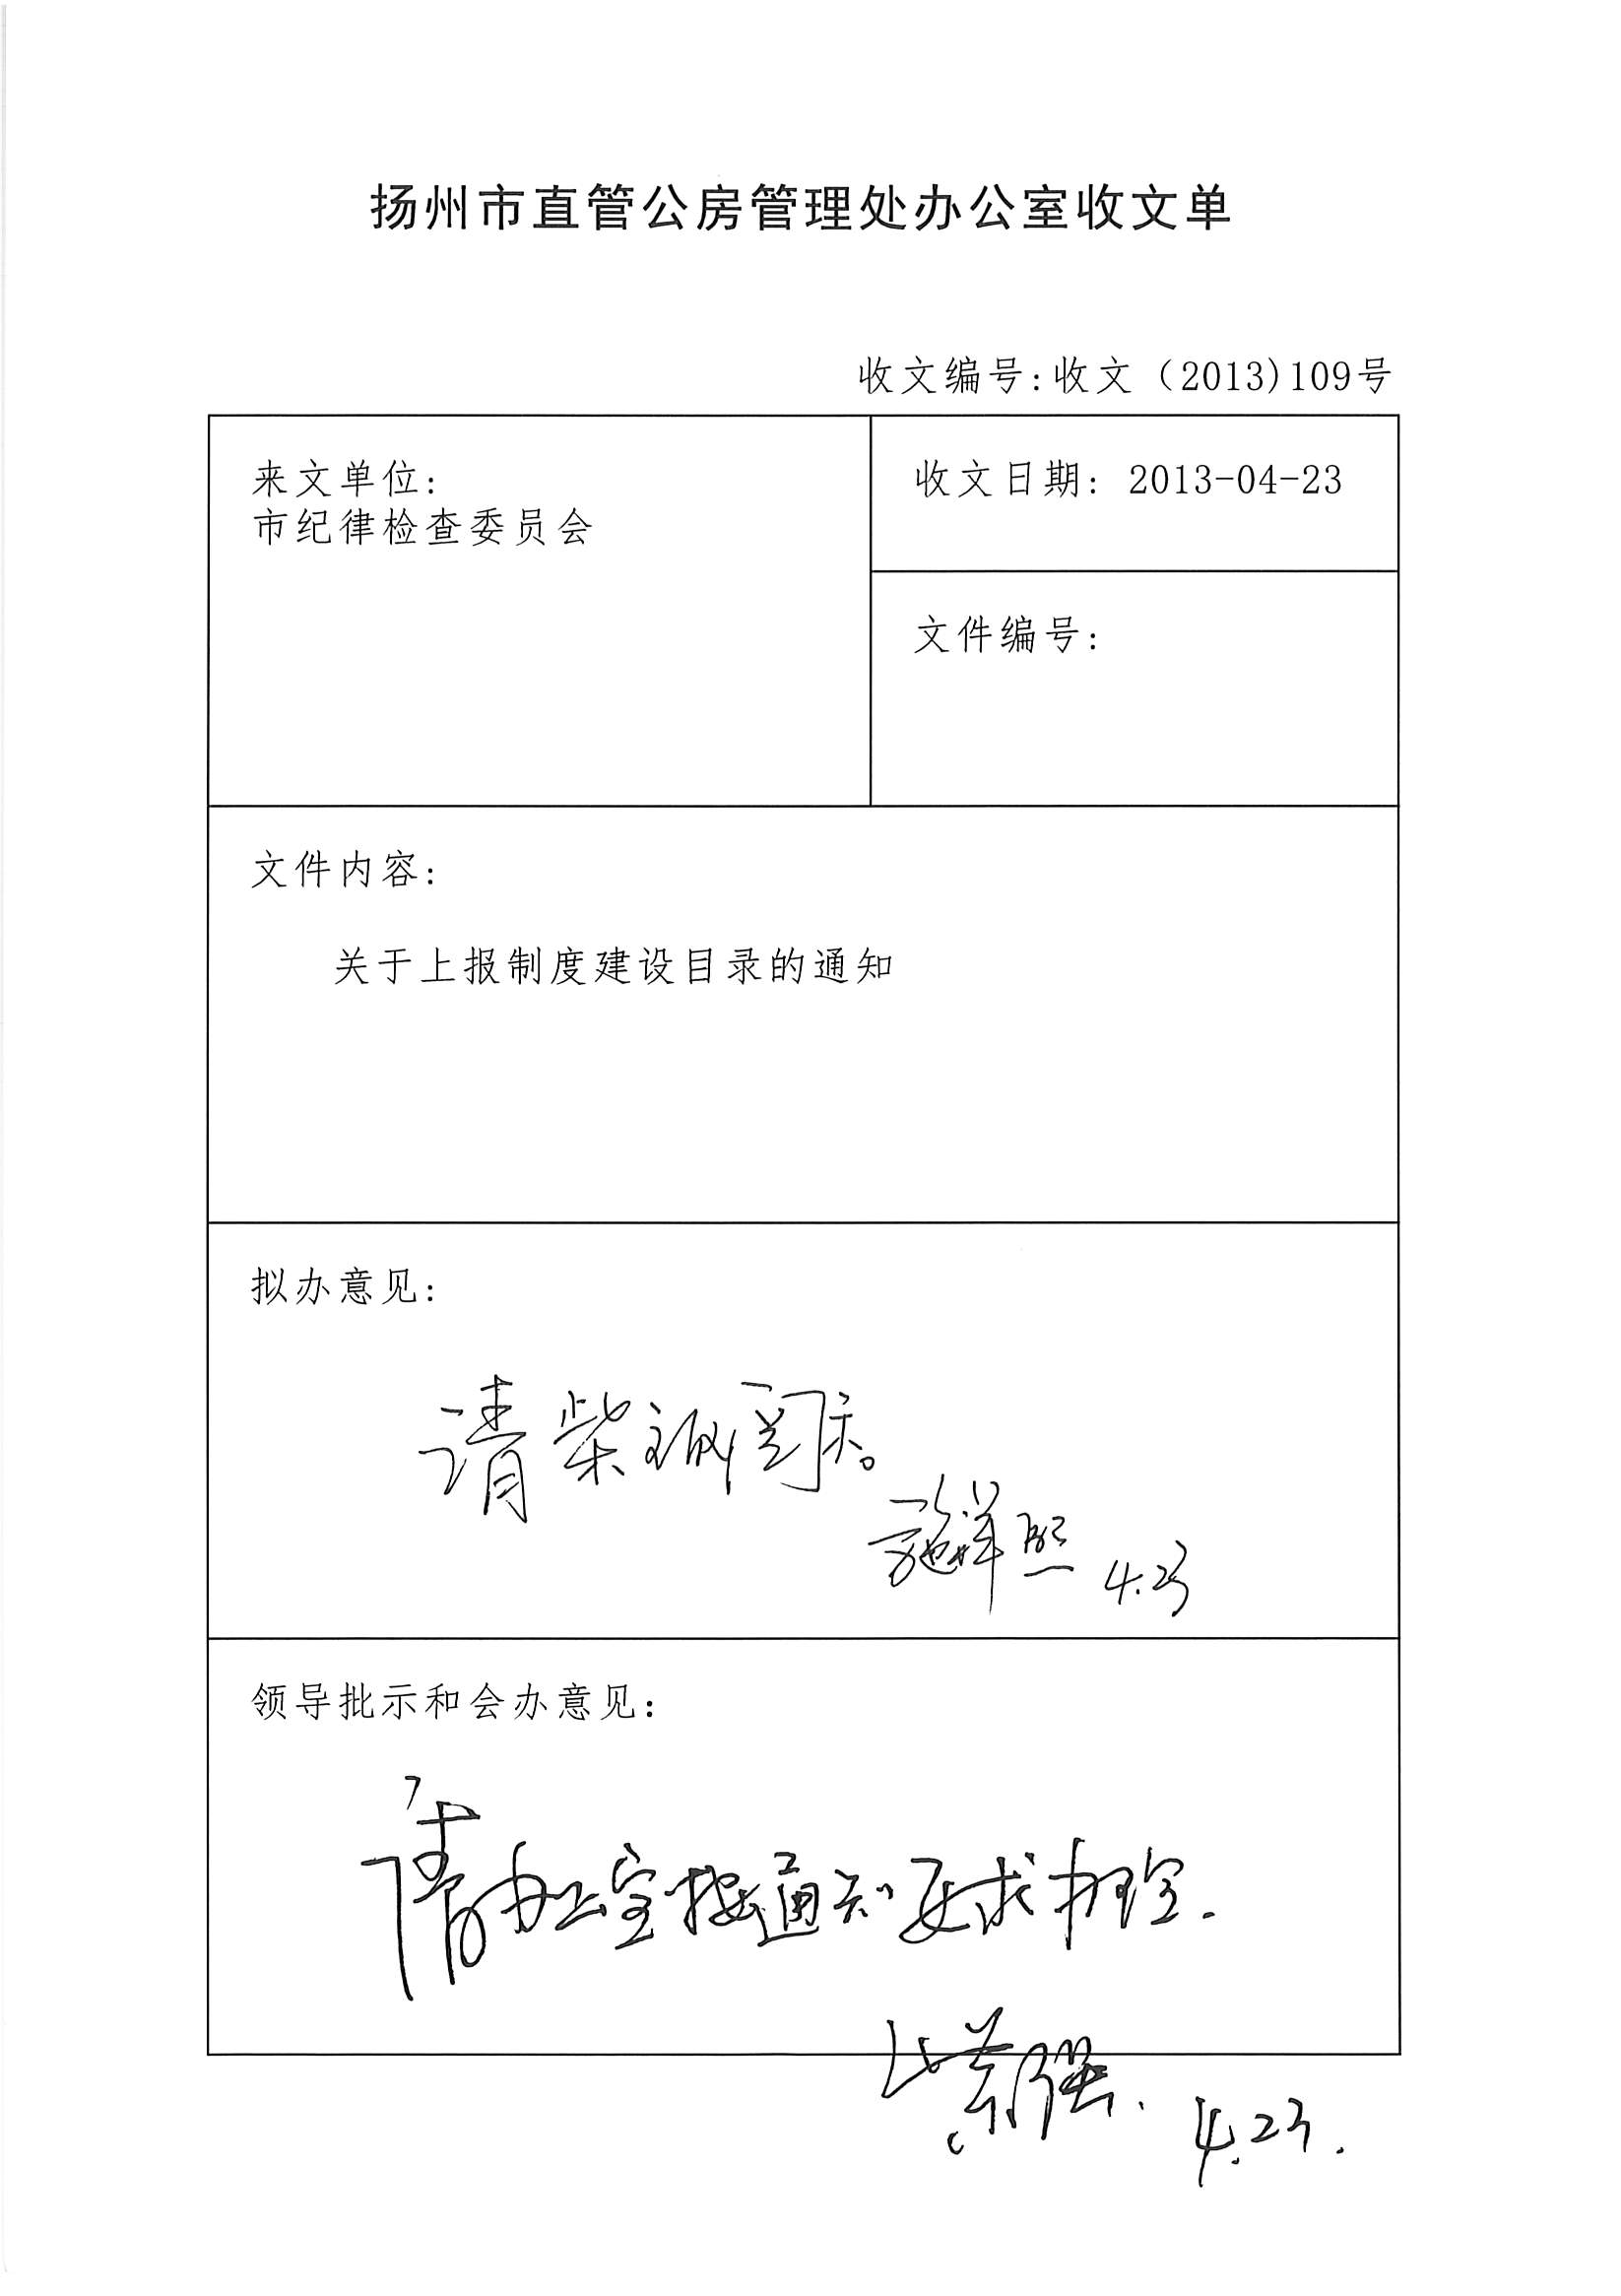 扬州市直管公房管理处办公室收文单
收文编号:收文（2013)109号
来文单位:
市纪律检查委员会
收文日期: 2013-04-23
文件编号:
文件内容:
关于上报制度建设目录的通知
拟办意见:
请柴主阅示。
施祥熙 4.23
领导批示和会办意见:
请办公室按通知要求办理.
柴强. 4.23.